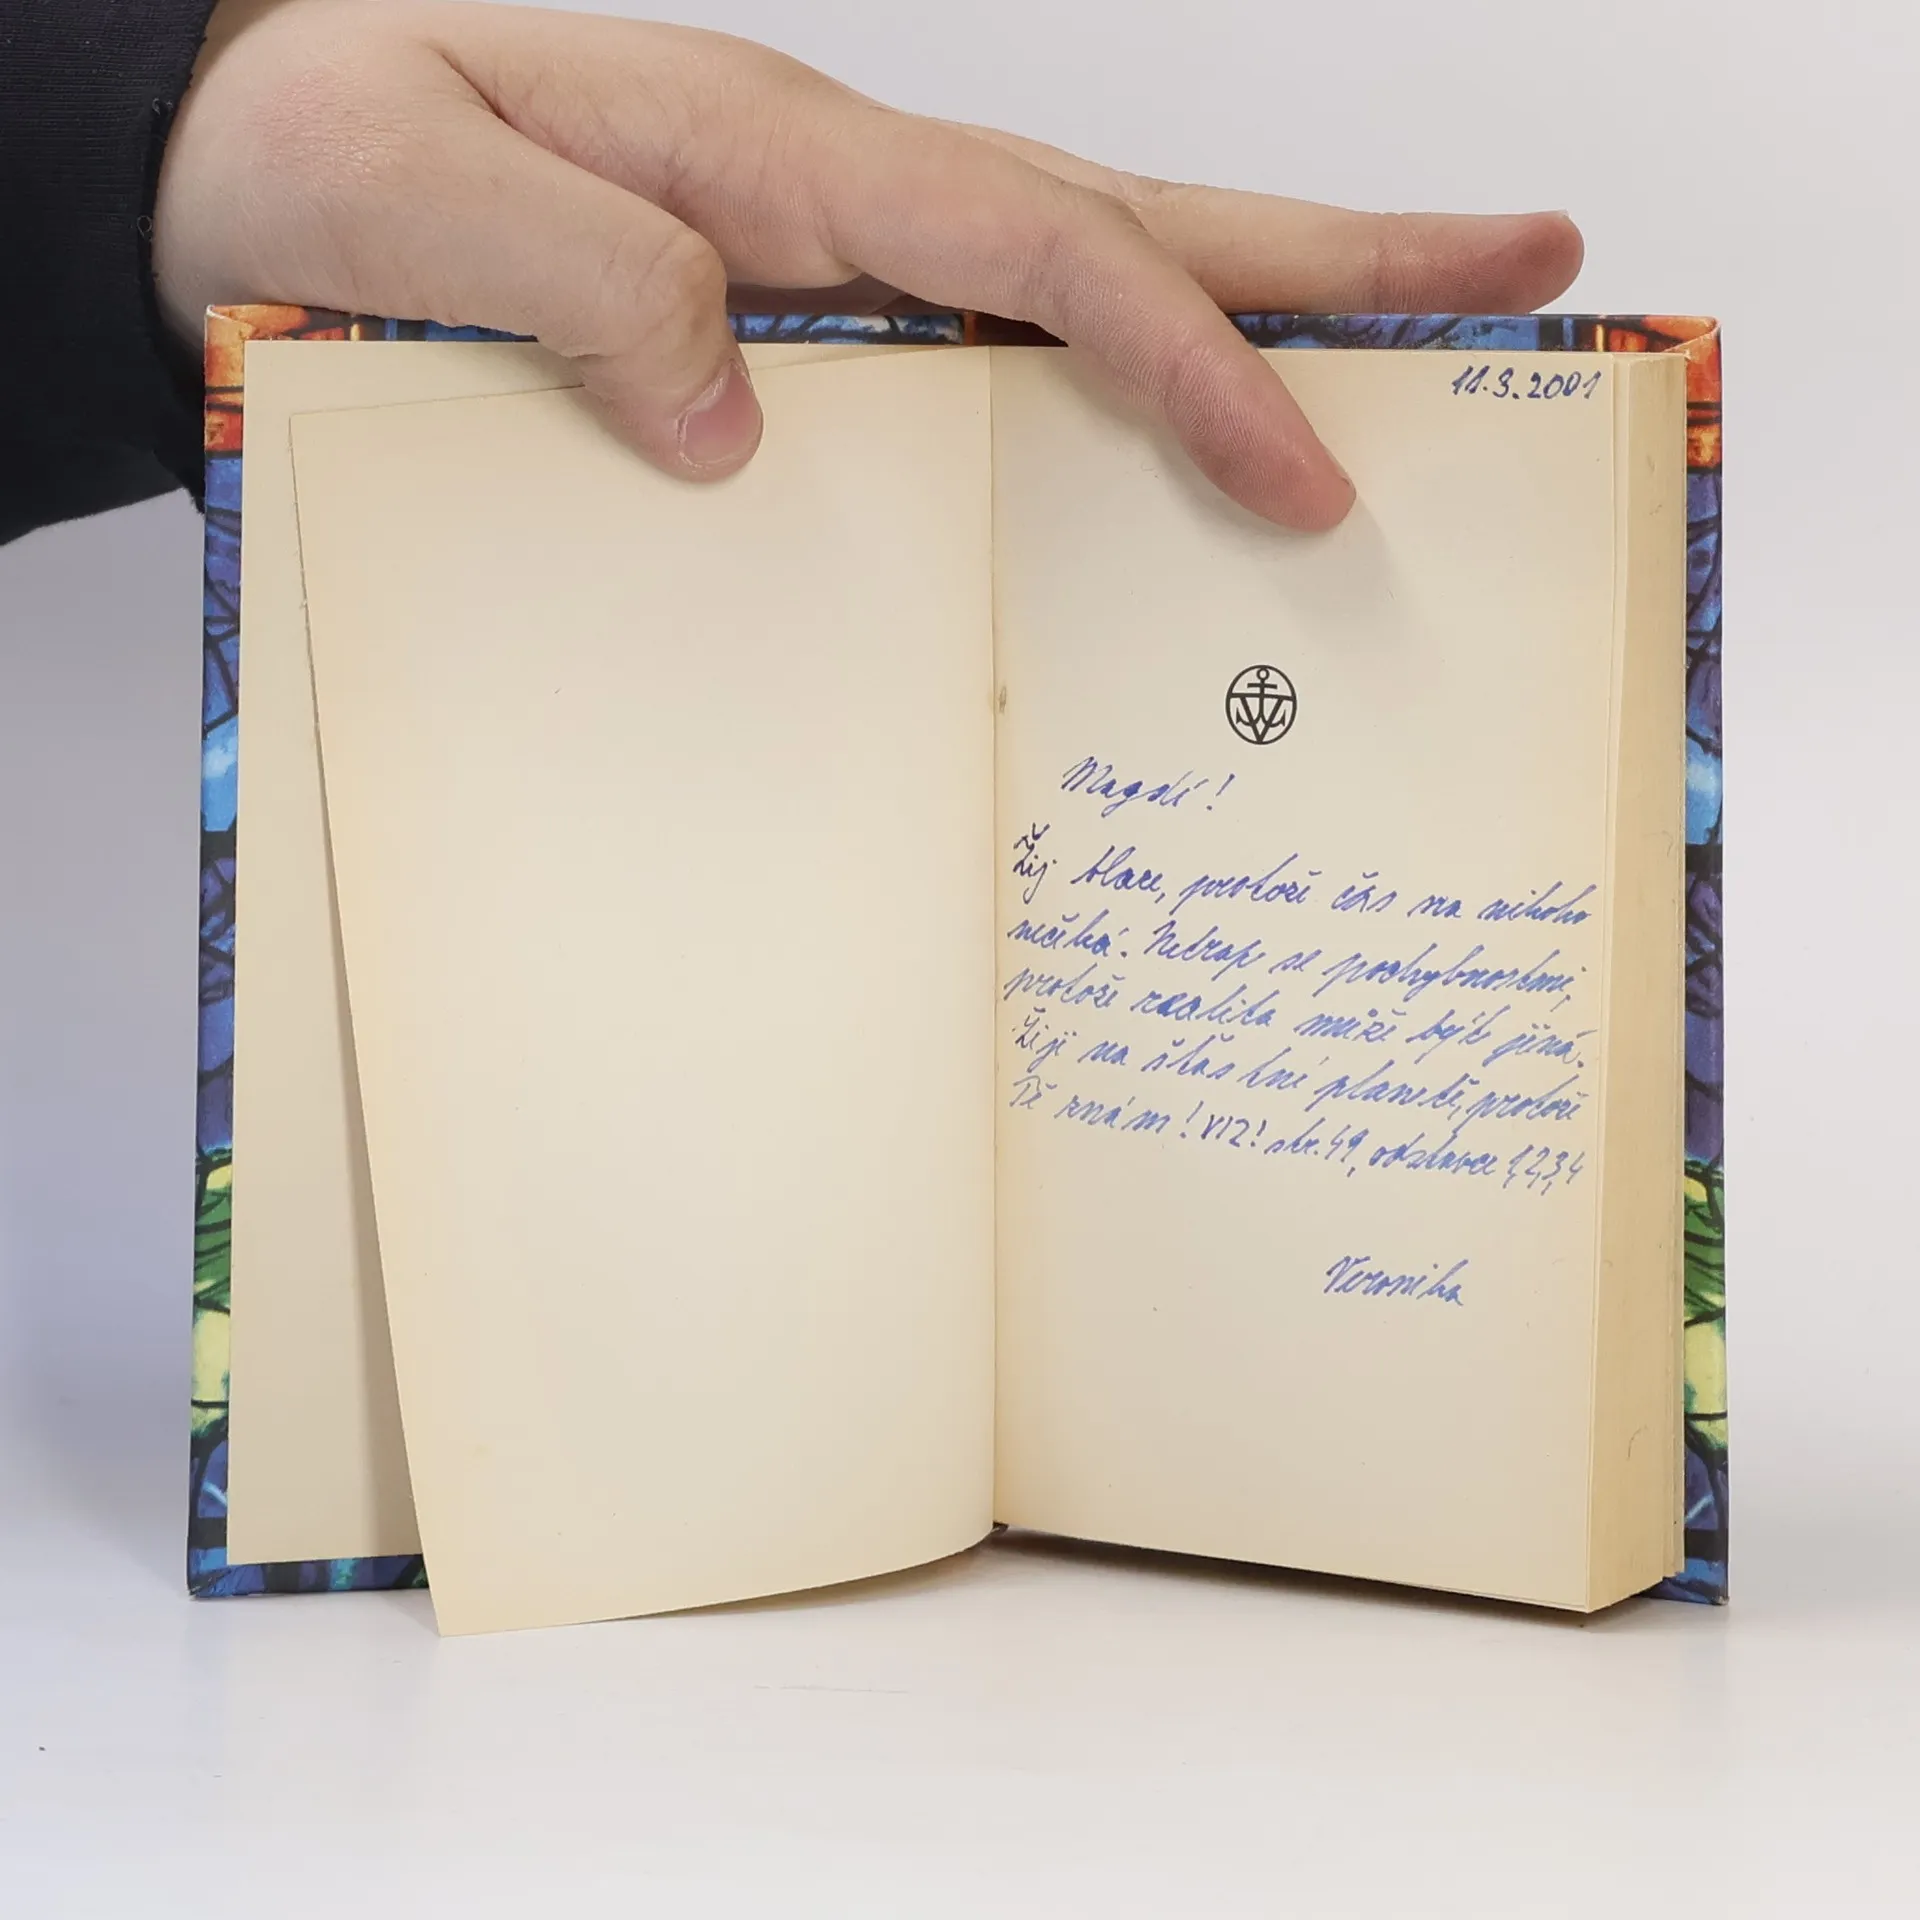 11.3.2001
Magdě!
Žij blaze, protože čas na nikoho
nečeká. Netrap se pochybnostmi,
protože realita může být jiná.
Žiji na šťastné planetě, protože
Tě znám! VIZ! str. 49, odstavce 1,2,3,4
Veronika